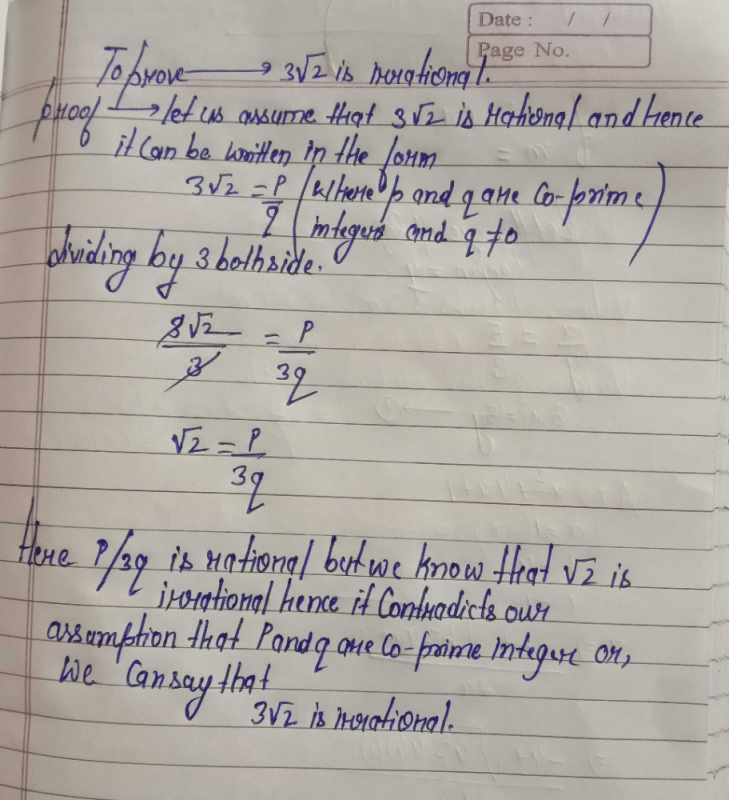 Date : / /
Page No.
To prove → 3√2 is irrational.
proof → let us assume that 3√2 is rational and hence
it can be written in the form
3√2 = P/q (where p and q are Co-prime
integers and q ≠ 0)
dividing by 3 both side.
3√2/3 = P/3q
√2 = P/3q
Here P/3q is rational but we know that √2 is
irrational hence it Contradicts our
assumption that P and q are Co-prime integer or,
We Can say that
3√2 is irrational.